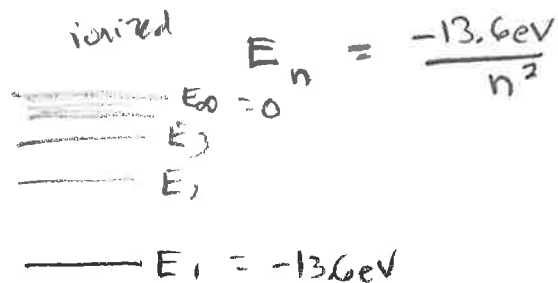 ionized
Eₙ = -13.6eV / n²
E∞ = 0
E₃
E₂
E₁ = -13.6eV